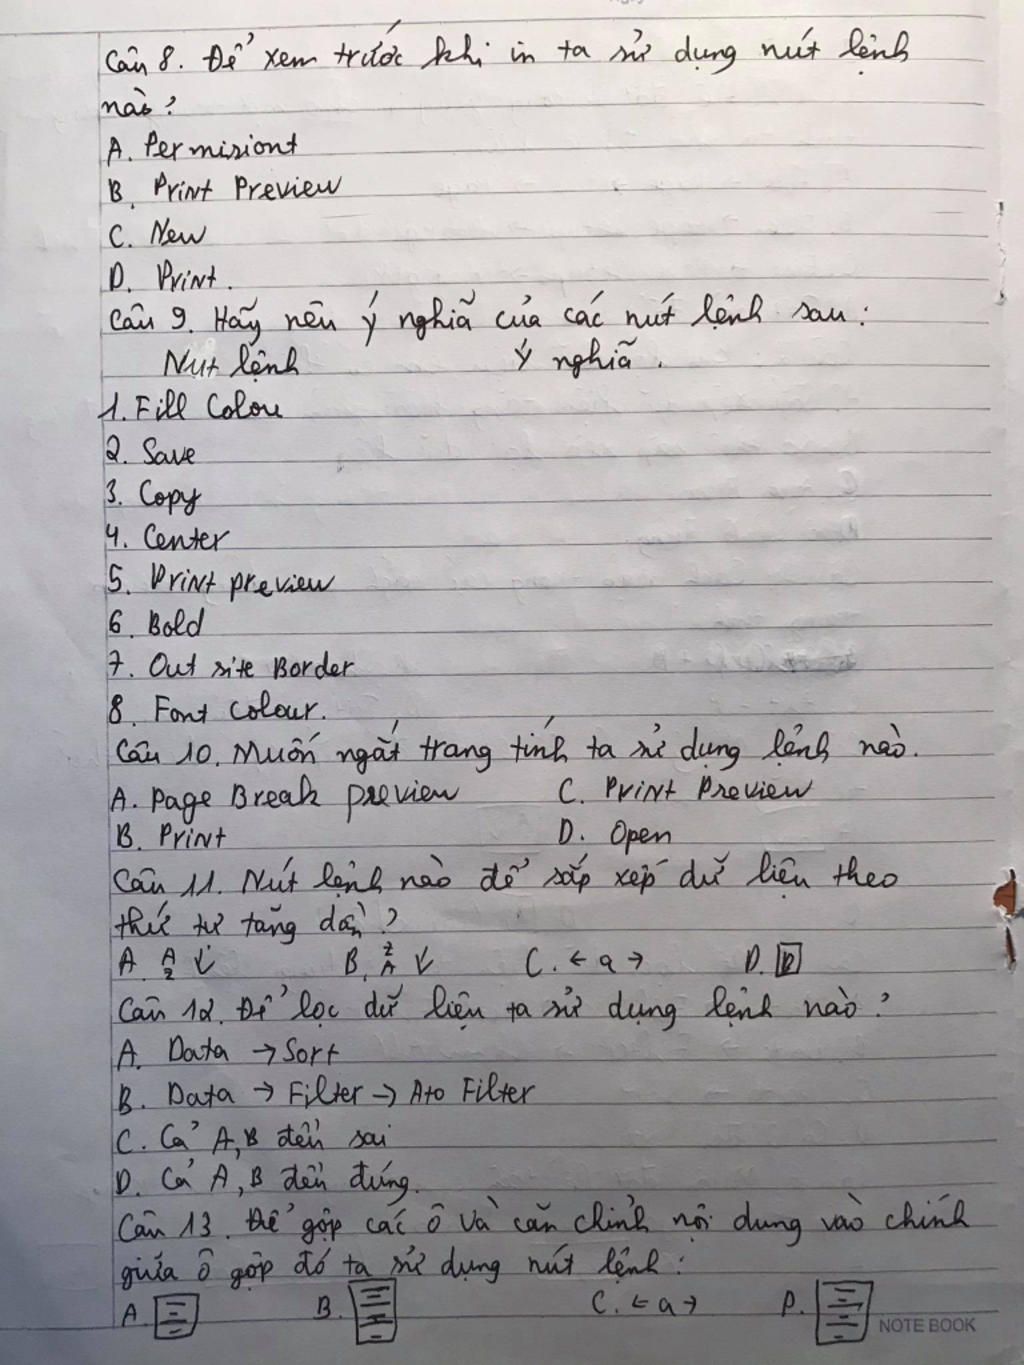 Câu 8. Để xem trước khi in ta sử dụng nút lệnh
nào?
A. Permisiont
B. Print Preview
C. New
D. Print.
Câu 9. Hãy nêu ý nghĩa của các nút lệnh sau:
Nut lệnh Ý nghĩa.
1. Fill Colou
2. Save
3. Copy
4. Center
5. Print preview
6. Bold
7. Out site Border
8. Font colour.
Câu 10. Muốn ngắt trang tính ta sử dụng lệnh nào.
A. Page Break preview C. Print Preview
B. Print D. Open
Câu 11. Nút lệnh nào để sắp xếp dữ liệu theo
thứ tự tăng dần?
A. A Z ↓ B. Z A ↓ C. ← a → D.
Câu 12. Để lọc dữ liệu ta sử dụng lệnh nào?
A. Data → Sort
B. Data → Filter → Ato Filter
C. Cả A, B đều sai
D. Cả A, B đều đúng.
Câu 13. Để gộp các ô và căn chỉnh nội dung vào chính
giữa ô gộp đó ta sử dụng nút lệnh:
A. B. C. ← a → D.
NOTE BOOK